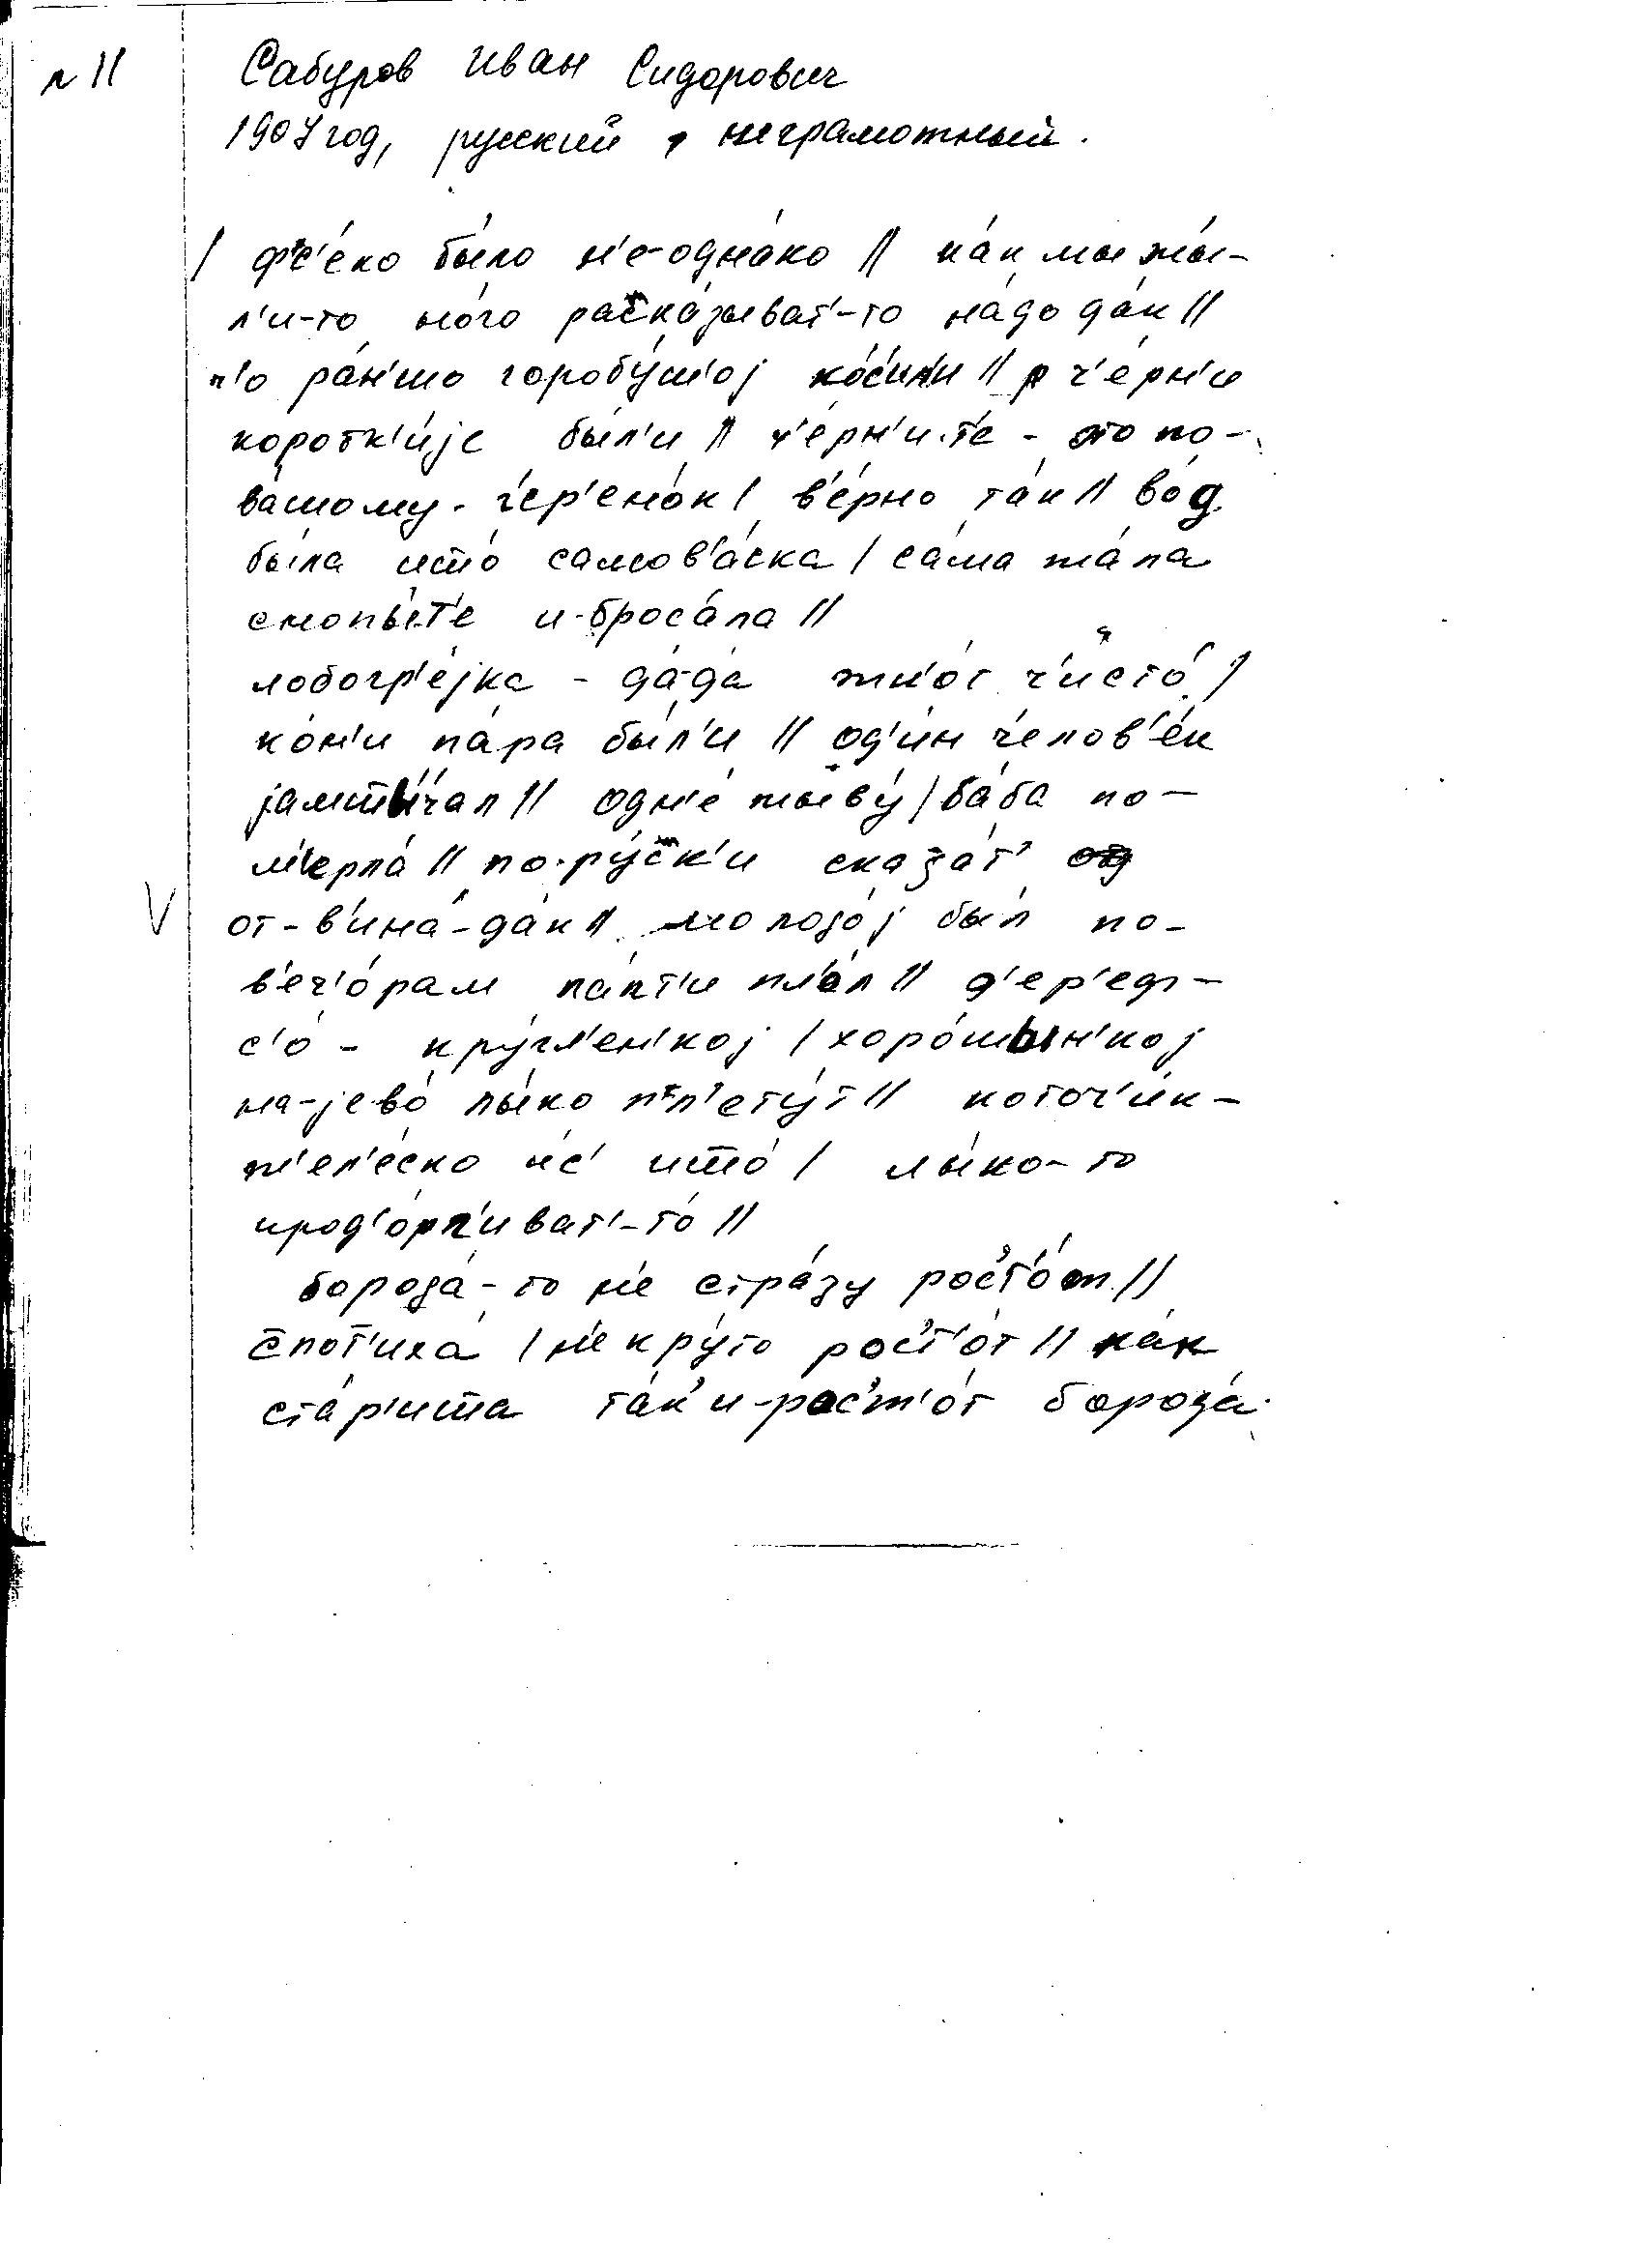 № 11 Сабуров Иван Сидорович
1907 год, русский, неграмотный.
/ ф'с'е́ко бы́ло н'е-одна́ко // ка́к мы жы́-
л'и-то но́го раска́зыват'-то на́до да́к //
п'о ра́н'шо горобу́ш'ој ко́с'ил'и // ч'е́рн'и
коротк'и́је бы́л'и // ч'е́рн'и-т'е - это по-
ва́шому - ч'ер'ено́к / в'е́рно та́к // во́д
бы́ла ишто́ самов'а́ска / са́ма жа́ла
снопы́т'е и-броса́ла //
лобогр'е́јка - да́-да́ жн'о́т ч'и́сто /
ко́н'и па́ра бы́л'и // од'и́н ч'елов'е́к
јамшы́ч'ал // одн'е́ жыву́ / ба́ба по-
м'ерла́ // по-ру́ск'и сказа́т'
от-в'ина́-да́к // молодо́ј бы́л по-
в'еч'о́рам ла́пт'и пл'о́л // д'ер'ев-
с'о́ - кру́гл'ен'кој / хоро́шын'кој
на-јево́ лы́ко пл'ету́т // коточ'и́к -
ж'ел'е́ско йе́с' ишто́ / лы́ко-то
прод'о́рг'иват'-то́ //
борода́-то н'е стра́зу рос'т'о́т //
спот'иха́ / н'е кру́то рос'т'о́т // ка́к
ста́р'иша та́к и-рос'т'о́т борода́.